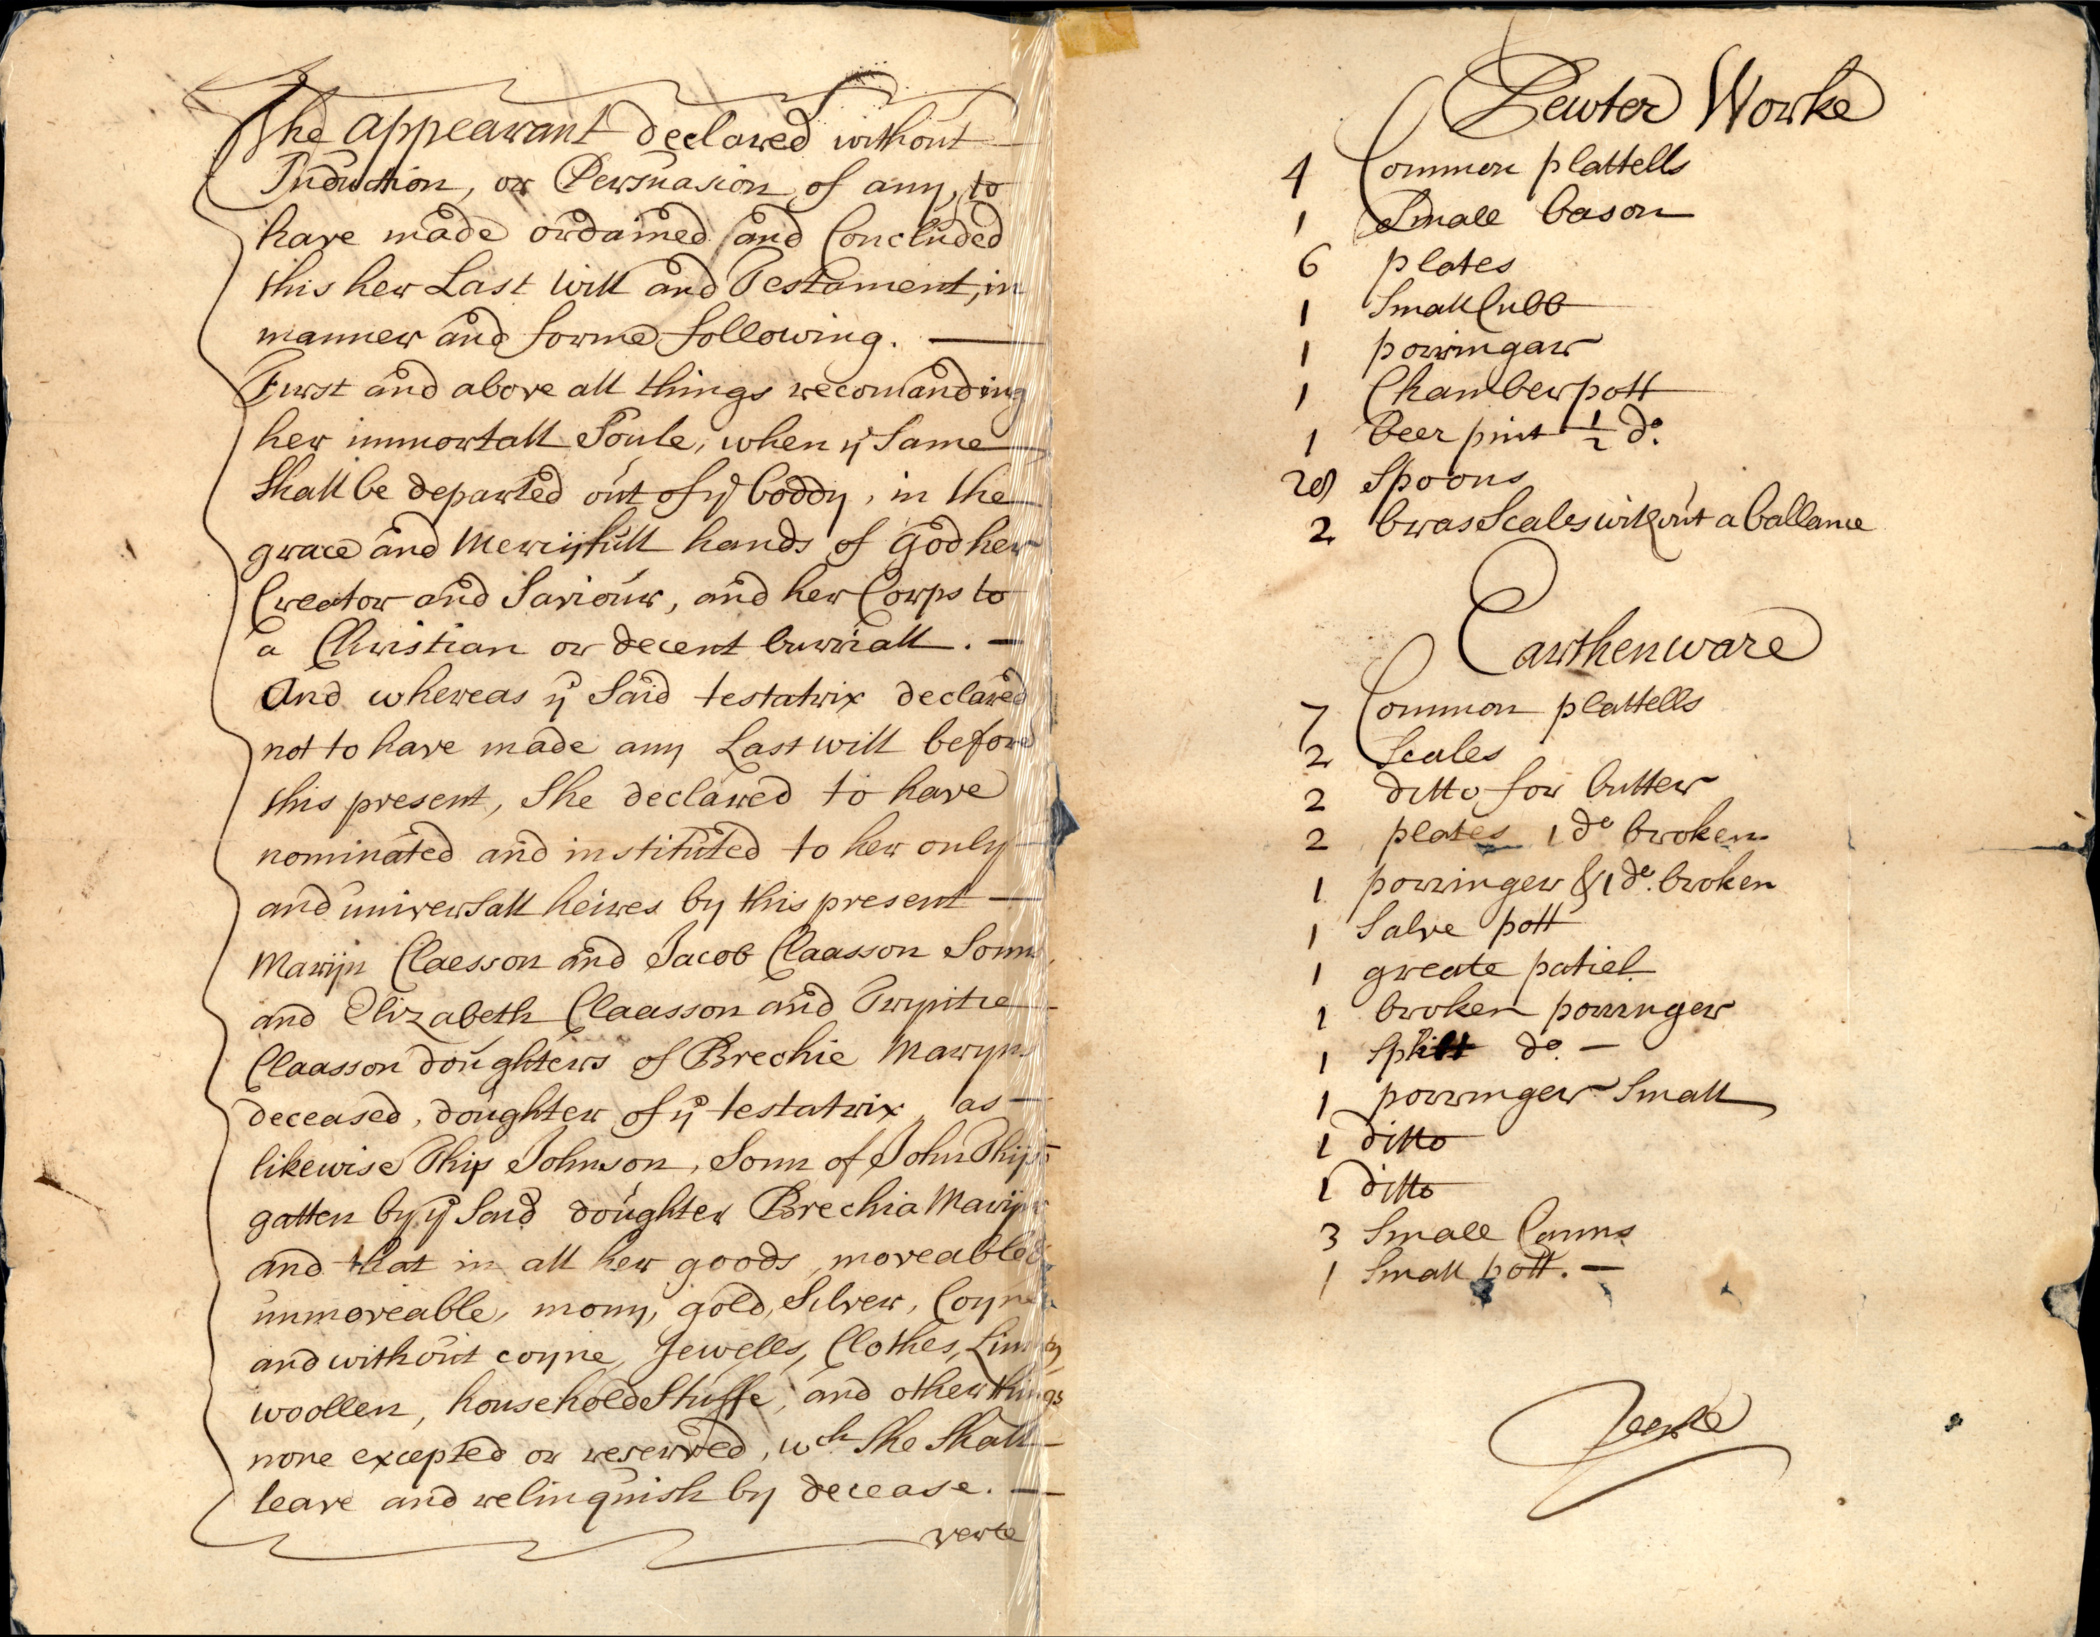 The appearant declared without
Induction, or Persuasion of any, to
have made ordained and Concluded
this her Last will and Testament, in
manner and forme following. —
First and above all things recomanding
her immortall Soule, when ÿ Same
Shall be departed out of ÿ boddy, in the
grace and Mercijfull hands of God her
Creator and Saviour, and her Corps to
a Christian or decent burriall. —
And whereas ÿ Said testatrix declared
not to have made any Last will before
this present, She declared to have
nominated and instituted to her only
and universall heires by this present —
Marijn Claesson and Jacob Claasson Sonns
and Elizabeth Claasson and Trijntie
Claasson doughters of Brechie Maryns
deceased, doughter of ÿ testatrix, as —
likewise Thijs Johnson, Sonn of John Thijs
gatten by ÿ Said doughter Brechia Marijns
and that in all her goods, moveable &
unmoveable, mony, gold, Silver, Coyne
and without coyne, Jewells, Clothes, Linnen
woollen, household Stuffe, and other things
none excepted or reserved, wch She Shall —
leave and relinquish by decease. —
verte
Pewter Worke
4 Common plattells
1 Small bason
6 plates
1 Small Cubb
1 porringar
1 Chamber pott
1 Beer pint 1/2 do.
28 Spoons
2 bras Scales without a ballance
Earthenware
7 Common plattells
2 Scales
2 ditto for butter
2 plates 1 do broken
1 porringer & 1 do. broken
1 Salve pott
1 greate patiel
1 broken porringer
1 Split do. —
1 porringer Small
1 ditto
1 ditto
3 Small Canns
1 Small pott. —